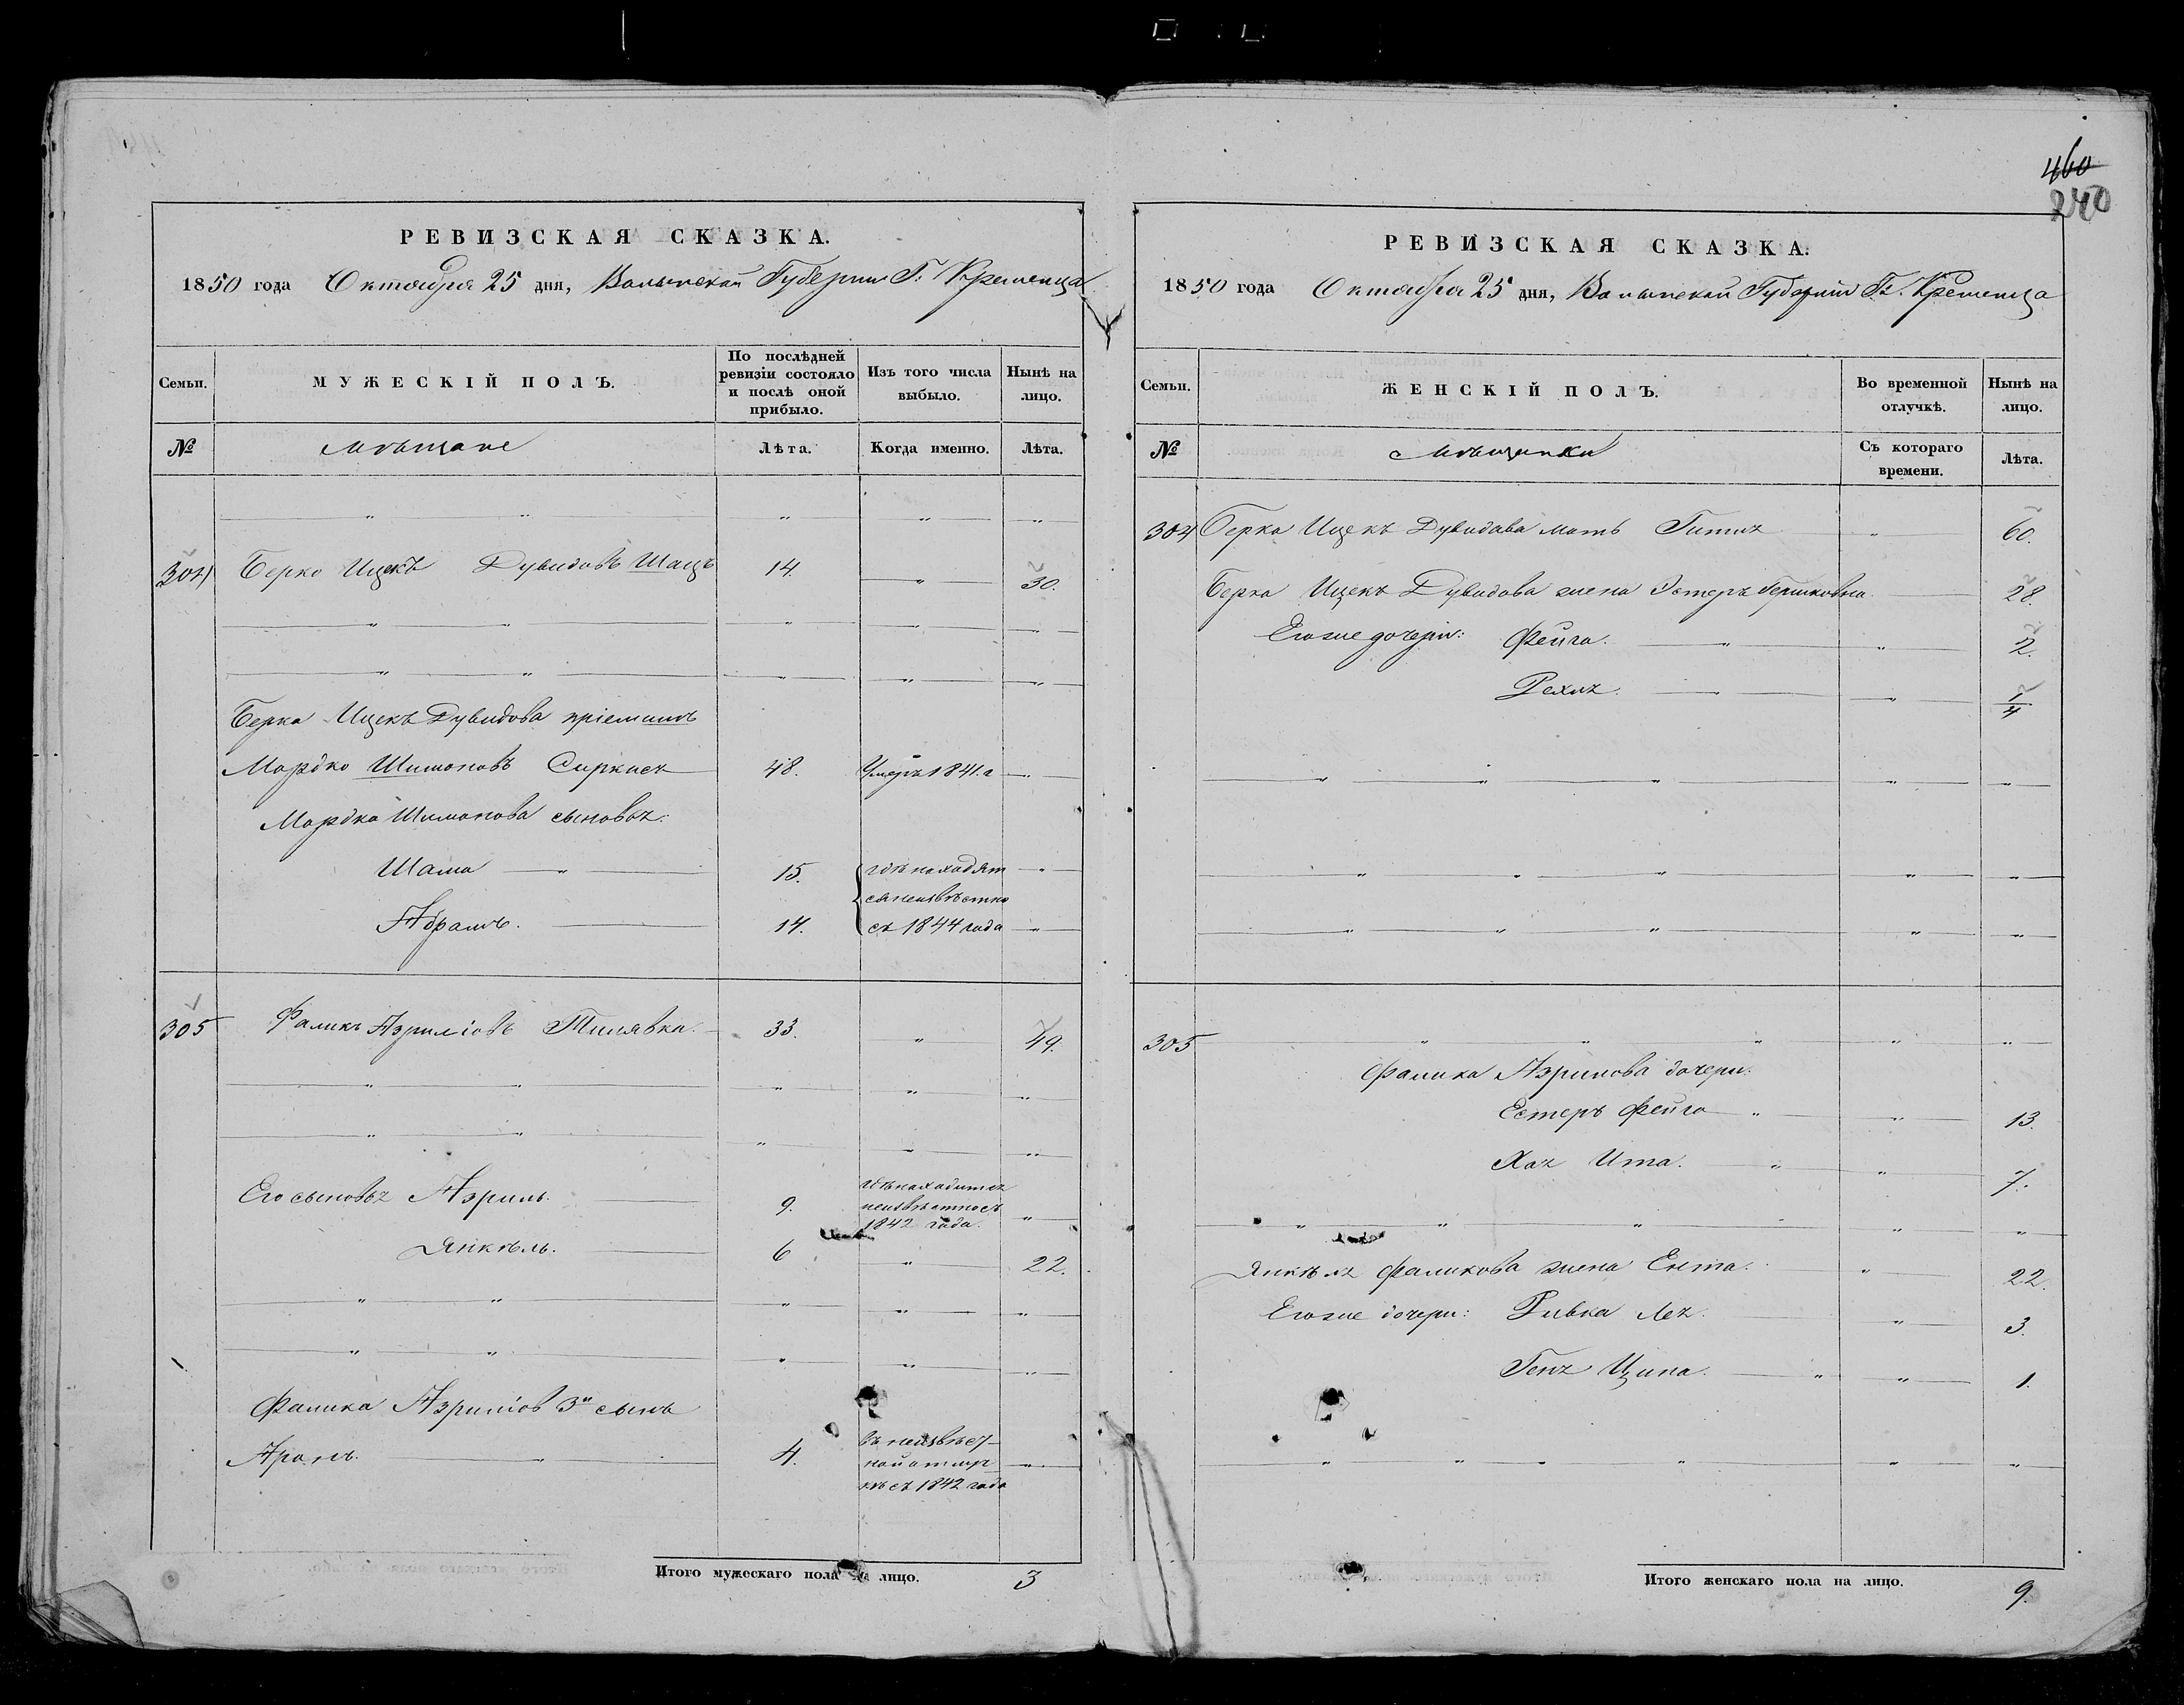 460
240
РЕВИЗСКАЯ СКАЗКА.
1850 года Октября 25 дня, Волынской Губернии Г. Кременца
Семьи.
МУЖЕСКІЙ ПОЛЪ.
По послѣдней ревизіи состояло и послѣ оной прибыло.
Изъ того числа выбыло.
Нынѣ на лицо.
№
Мѣщане
Лѣта.
Когда именно.
Лѣта.
304 Берко Ицекъ Дувидовъ Шацъ 14. „ 30.
Берка Ицекъ Дувидова пріемышъ
Мордко Шимоновъ Сиркисъ 48. Умеръ 1841. г „
Мордка Шимонова сыновья:
Шама „ 15. гдѣ находят „
ся неизвѣстно
Абрамъ. 14. съ 1844 года „
305 Фаликъ Азриліовъ Тилявка. 33. „ 49.
Его сыновья Азриль. 9. гдѣ находится
неизвѣстно съ
1842 года. „
Янкѣль. 6 „ 22.
Фалика Азриліов 3й сынъ
Аронъ. „ 4. въ неизвѣст-
ной отлуч „
кѣ съ 1842 года
Итого мужескаго пола на лицо. 3
РЕВИЗСКАЯ СКАЗКА.
1850 года Октября 25 дня, Волынской Губерніи Г. Кременца
Семьи.
ЖЕНСКІЙ ПОЛЪ.
Во временной отлучкѣ.
Нынѣ на лицо.
№
Мѣщанки
Съ котораго времени.
Лѣта.
304 Берка Ицекъ Дувидова мать Гитля „ 60.
Берка Ицекъ Дувидова жена Эстеръ Гершковна 28.
Его же дочери: Фейга. „ „ 2.
Рехля. „ „ 1/4
305 „ „ „ „ „
Фалика Азрилова дочери:
Естеръ Фейга „ „ 13.
Хая Ита. „ „ 7.
Янкѣля Фаликова жена Ента. „ 22.
Его же дочери: Ривка Лея. „ 3.
Геня Ципа. „ „ 1.
Итого женскаго пола на лицо. 9.